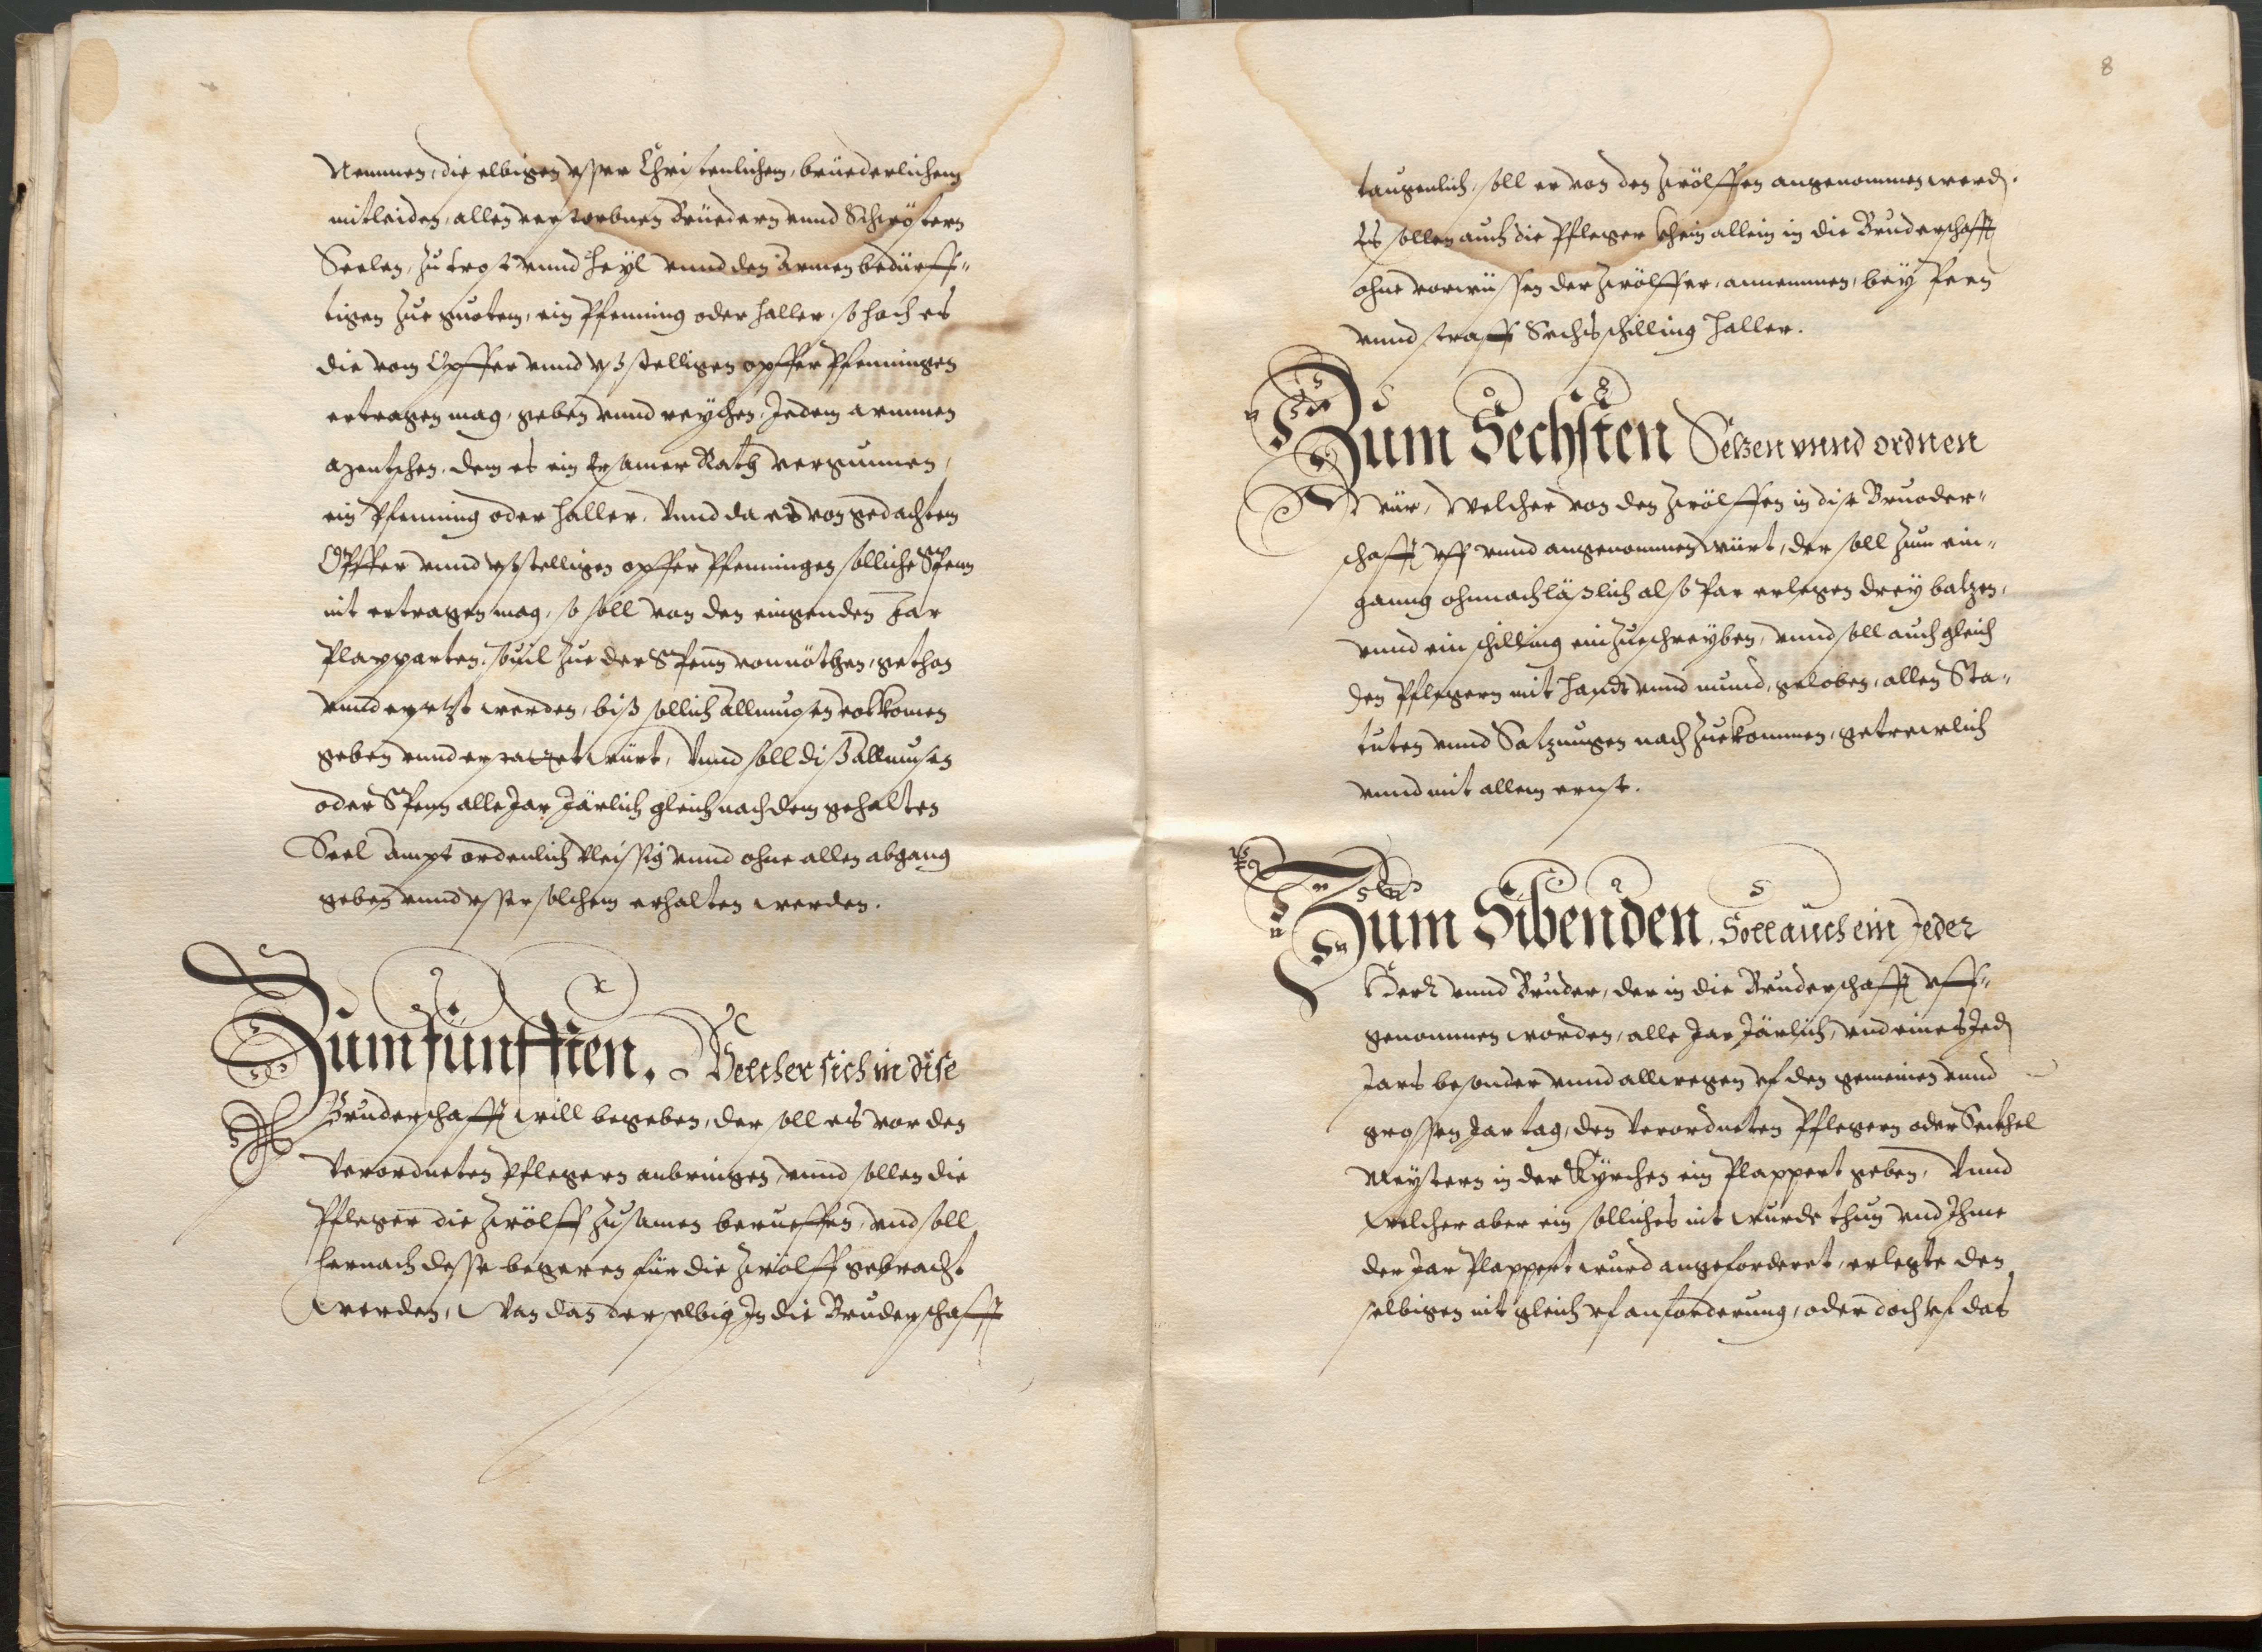 Nemmen, die selbigen usser Christenlichem, brüederlichem
mitleiden, allen verstorbnen Brüedern unnd Schwöstern
Seelen, zu trost unnd Heyl unnd den armen bedürff-
tigen zue guotem, ein Pfenning oder Haller, so hoch es
die vom Opffer unnd ußstelligen opffer Pfenningen
ertragen mag, geben unnd reychen, Jedem armmen
mentschen, dem es ein Ersamer Rath vergunnen,
ein Pfenning oder Haller, Unnd da es von gedachtem
Opffer unnd ußstelligen opffer Pfenningen solliche Spenn
nit ertragen mag, so soll von den eingenden Jar
Plapparten, sovil zue der Spenn vonnöthen, gethon
unnd ersetzt werden, biß sollich allmuosen volkomen
geben unnd erstattet würt, Unnd soll diß allmuosen
oder Spenn alle Jar Järlich gleich nach dem gehalten
Seel ampt ordenlich vleissig unnd ohne allen abgang
geben unnd usser solchem erhalten werden.
Zum fünfften. Welcher sich in dise
Bruderschafft will begeben, der soll es vor den
Verordneten Pflegern anbringen, unnd sollen die
Pfleger die zwölff zusamen berueffen, und soll
hernach desse begeren für die zwölff gebracht
werden, Wan dan derselbig In die Bruderschafft
8
taugenlich, soll er von den zwölffen angenommen werd.
Es sollen auch die Pfleger khein allein in die Bruderschafft
ohne vorwüssen der zwölffer, annemmen, bey Peen
unnd straff Sechs schilling Haller.
Zum Sechsten Setzen vnnd ordnen
Wür, Welcher von den zwölffen in dise Bruoder-
schafft uff unnd angenommen würt, der soll zum ein-
ganng ohnnachläßlich also par erlegen drey batzen,
unnd ein schilling einzueschreyben, unnd soll auch gleich
den Pflegern mit Handt unnd mund, geloben, allen Sta-
tuten unnd Satzungen nach zuekommen, getrewlich
unnd mit allem ernst.
Zum Sibenden. Soll auch ein Jeder
Herr unnd Bruder, der in die Bruderschafft uff-
genommen worden, alle Jar Järlich, und eines Jed
Jars besonder unnd allwegen uf den gemeinen unnd
grossen Jar tag, den Verordneten Pflegern oder Seckhel
Meystern in der Kyrchen ein Plappert geben, Unnd
welcher aber ein solliches nit wurde thun und Ihme
der Jar Plappert wurd angeforderet, erlegte den
selbigen nit gleich uf anforderung, oder doch uf das